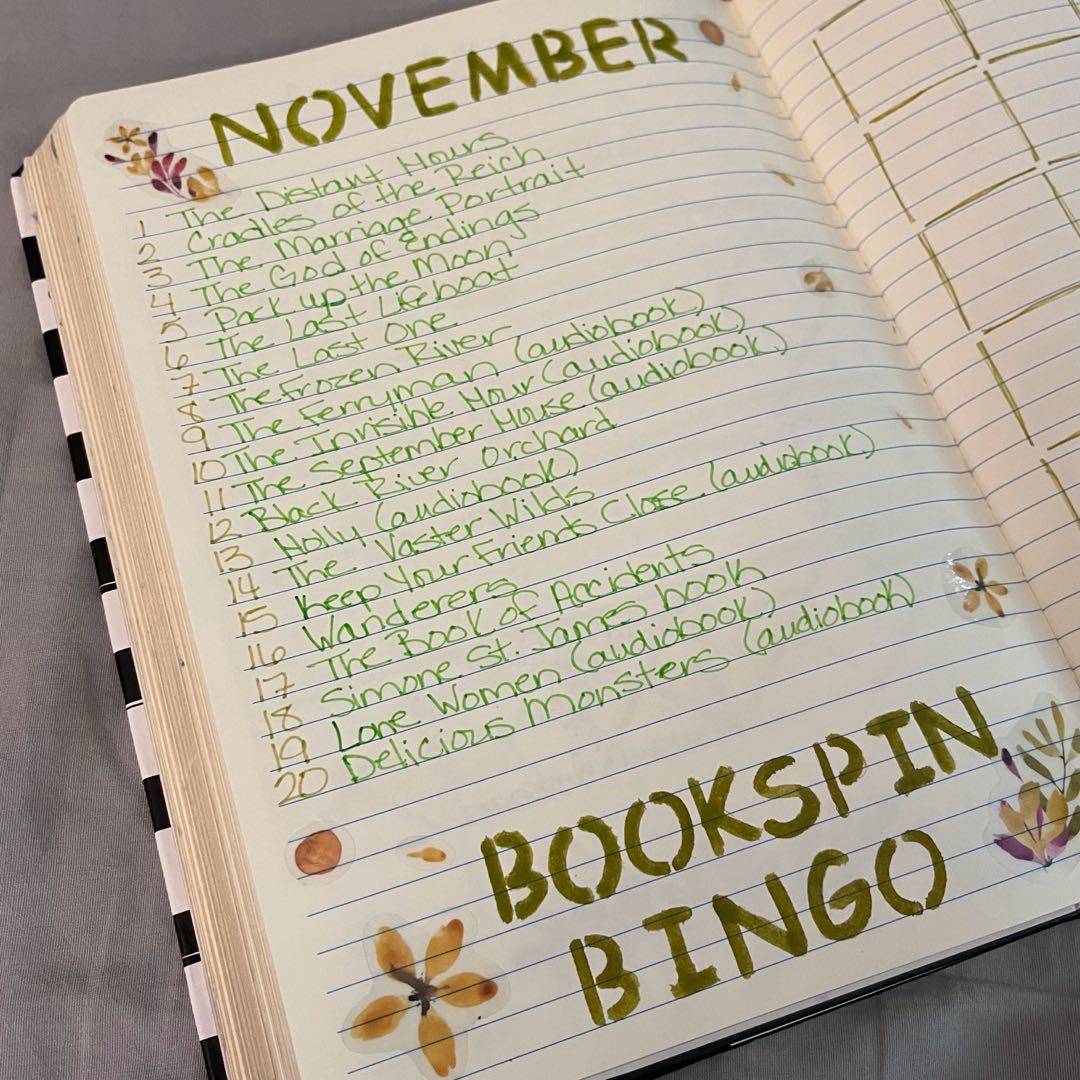 NOVEMBER
1 The Distant Hours
2 Cradles of the Reich
3 The Marriage Portrait
4 The God of Endings
5 Pack up the Moon
6 The Last Lifeboat
7 The Last One
8 The Frozen River
9 The Ferryman (audiobook)
10 The Invisible Hour (audiobook)
11 The September House (audiobook)
12 Black River Orchard
13 Holly (audiobook)
14 The Vaster Wilds
15 Keep Your Friends Close (audiobook)
16 Wanderers
17 The Book of Accidents
18 Simone St. James book
19 Lone Women (audiobook)
20 Delicious Monsters (audiobook)
BOOKSPIN
BINGO